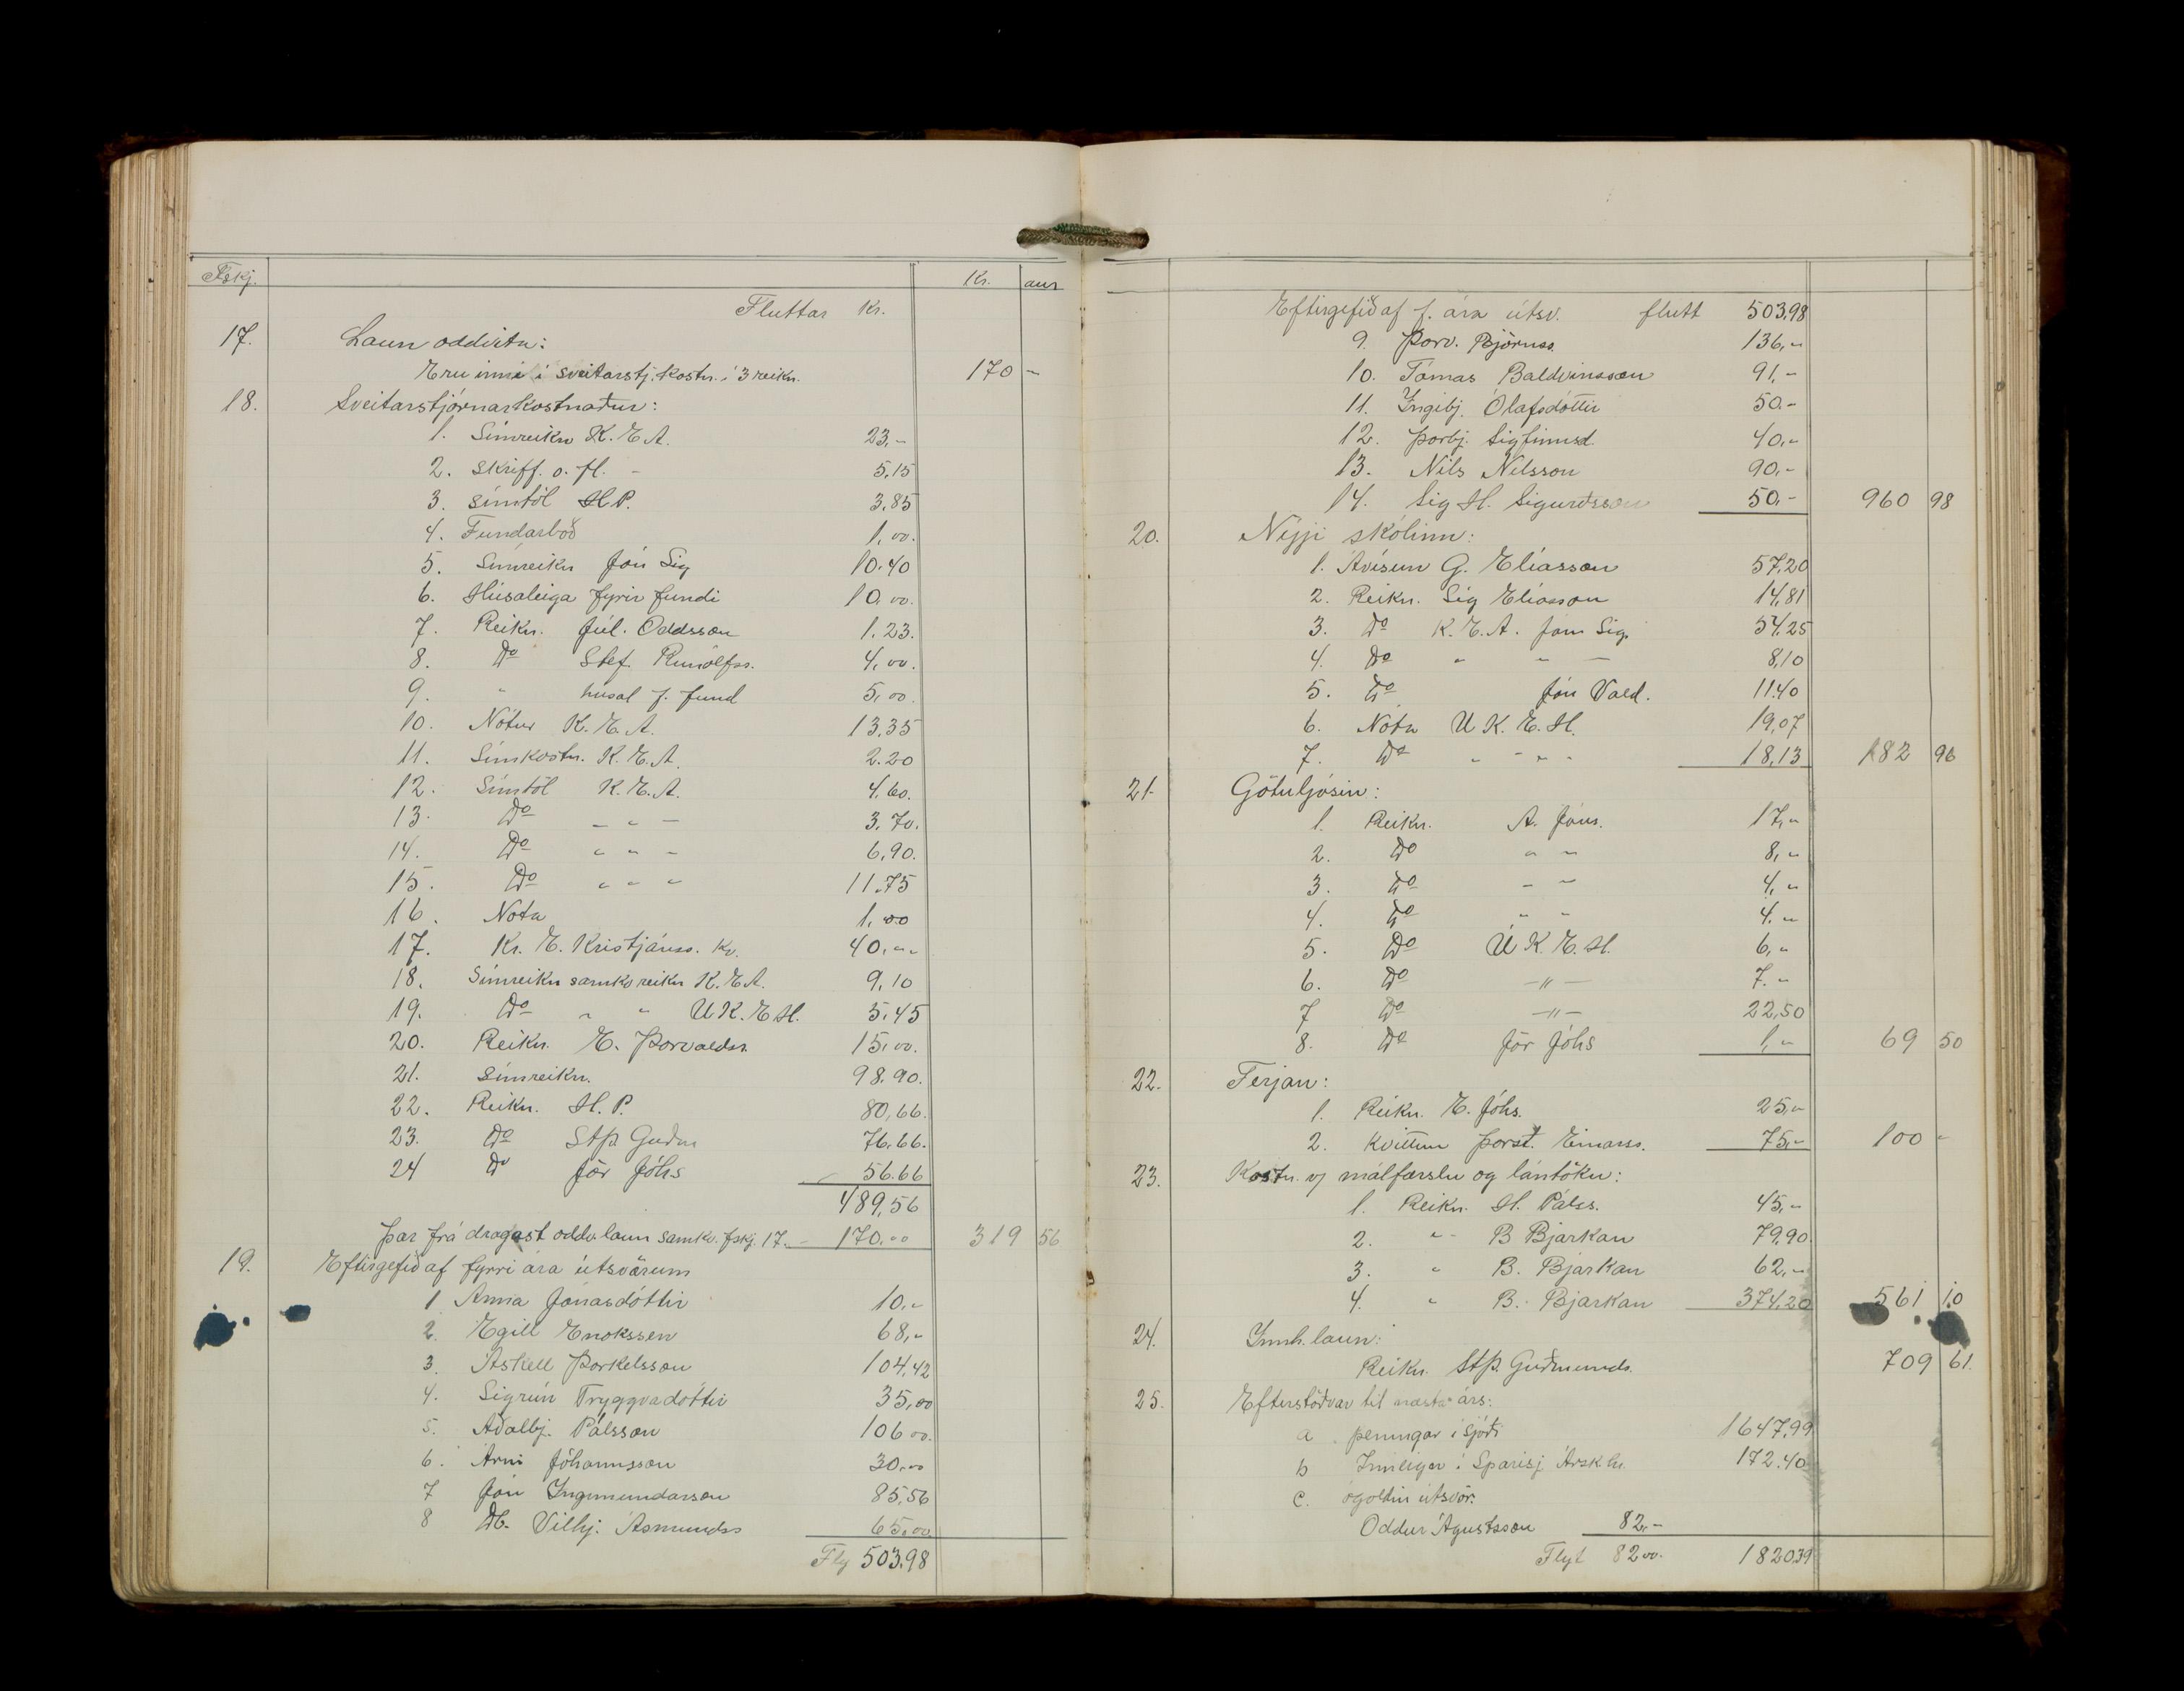 Fskj. Kr. aur
Fluttar Kr.
17. Laun oddvita:
Eru inni í sveitarstj. kostn. í 3 reikn. 170 -
18. Sveitarstjórnarkostnaður:
1. Símreikn K.E.A. 23,-
2. Skriff. o. fl. - 5,15
3. Símtöl H.P. 3,85
4. Fundarboð 1,00.
5. Símreikn Jón Sig 10.40
6. Húsaleiga fyrir fundi 10.00.
7. Reikn. Júl. Oddsson 1.23.
8. Do Stef. Runólfss. 4,00.
9. " húsal f. fund 5,00.
10. Nótur K.E.A. 13,35
11. Símkostn. K.E.A. 2.20
12. Símtöl K.E.A. 4.60.
13. Do - " - 3.70.
14. Do " " - 6,90.
15. Do " " " 11.75
16. Nota 1,00
17. Kr. E. Kristjánss. Kv. 40,--
18. Símreikn samkv reikn K.E.A. 9,10
19. Do " " U.K.E.H. 5.45
20. Reikn. E. Þorvaldss. 15,00.
21. Símreikn. 98.90.
22. Reikn. H.P. 80,66.
23. Do Stþ. Guðm 76.66.
24 Do Jór Jóhs 56.66
489,56
Þar frá dragast oddv. laun samkv. fskj. 17. - 170.00 319 56
19. Eftirgefið af fyrri ára útsvörum
1 Anna Jónasdóttir 10,-
2. Egill Enokssen 68,-
3. Áskell Þorkelsson 104,42
4. Sigrún Tryggvadóttir 35,00
5. Aðalbj. Pálsson 106 00.
6. Árni Jóhannsson 30,00
7 Jón Ingimundarson 85,56
8 Db. Vilhj. Ásmundss 65,00
Fly 503,98
Eftirgefið af f. ára útsv. flutt 503,98
9. Þorv. Björnss. 136,-
10. Tómas Baldvinsson 91,-
11. Ingibj. Ólafsdóttir 50.-
12. Þorbj. Sigfinnsd. 40,-
13. Nils Nilsson 90,-
14. Sig H. Sigurðsson 50,- 960 98
20. Nýji skólinn:
1. Ávísun G. Elíasson 57,20
2. Reikn. Sig Elíasson 14,81
3. Do K.E.A. Jón Sig. 54,25
4. Do " " - 8,10
5. Do Jón Vald. 11.40
6. Nóta U.K.E.H. 19,07
7. Do " - " - 18,13 182 96
21. Götuljósin:
1. Reikn. A. Jóns. 17,-
2. Do " " 8,-
3. Do - " 4,-
4. Do " " 4.-
5. Do Ú K.E.H. 6,-
6. Do -"- 7.-
7 Do -"- 22,50
8. Do Jór Jóhs 1,- 69 50
22. Ferjan:
1. Reikn. E. Jóhs. 25,-
2. Kvittun Þorst. Einarss. 75,- 100 -
23. Kostn. v/ málfærslu og lántöku:
1. Reikn. H. Pálss. 45,-
2. " B Bjarkan 79,90.
3. " B. Bjarkan 62,-
4. " B. Bjarkan 374,20 561 10
24. Innh. laun:
Reikn. Stþ. Guðmunds. 709 61.
25. Efterstöðvar til næsta árs:
a. peningar í sjóði 1647,99
b Inneignir í Sparisj. Árskhr. 172.40
c. ógoldin útsvör:
Oddur Ágústsson 82,-
Flyt 82 00. 1820,39